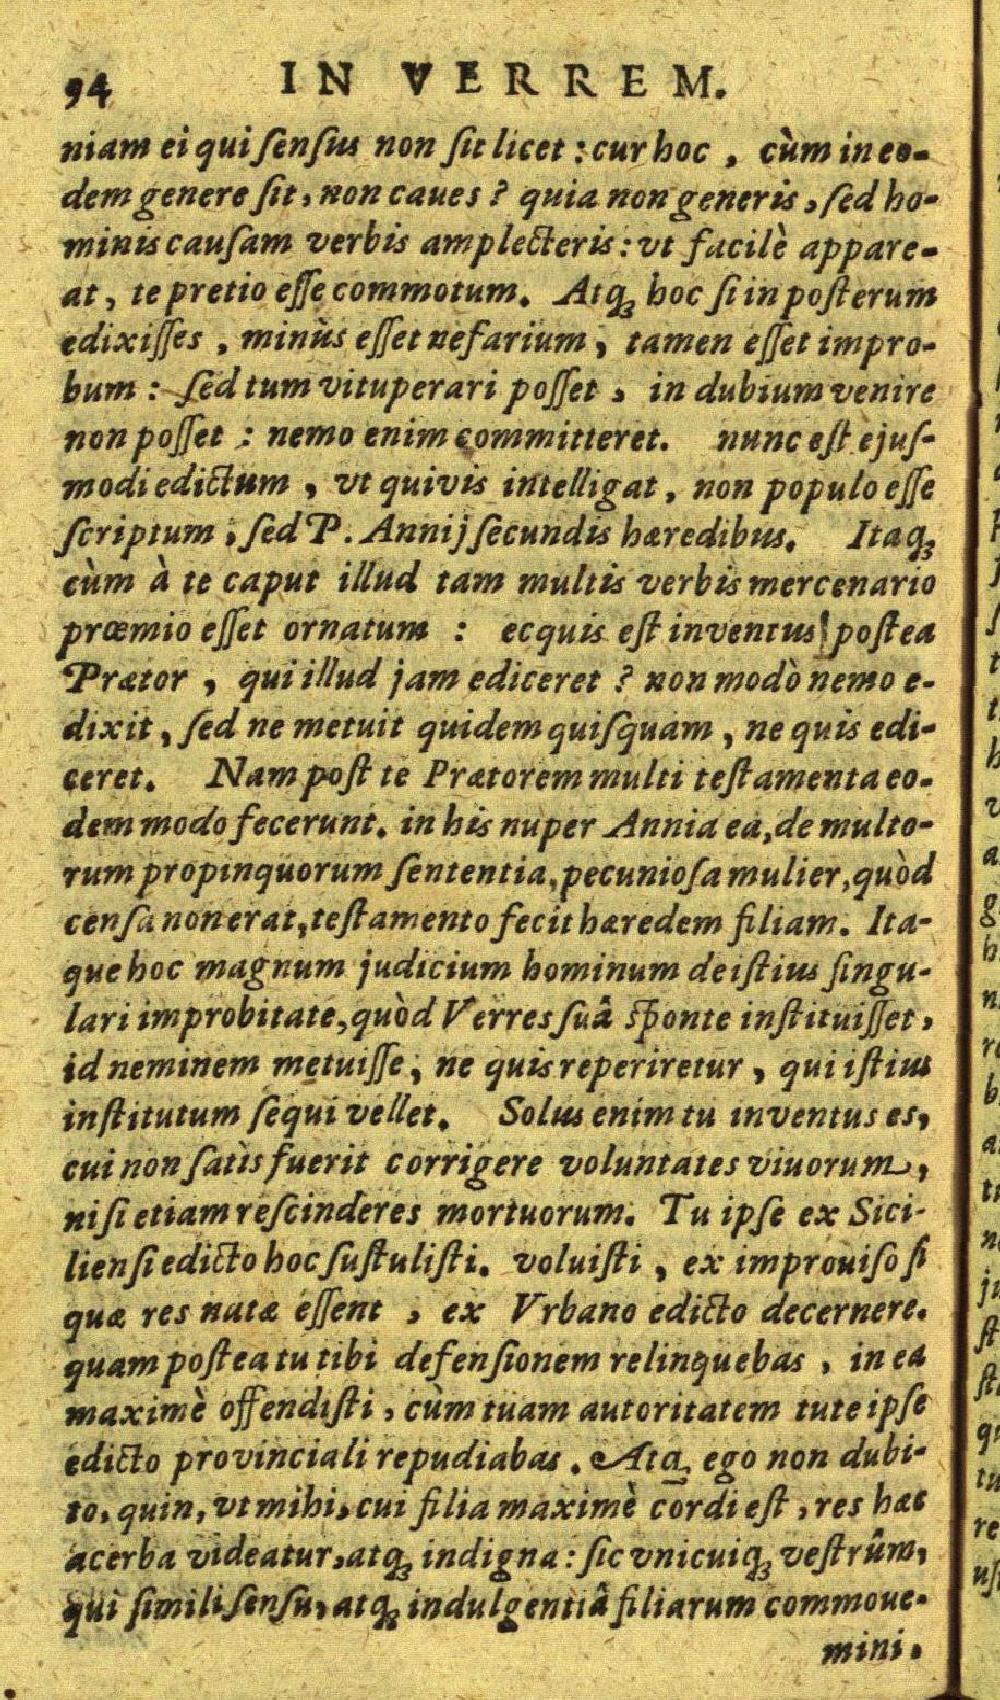 94 IN VERREM.
niam ei qui sensus non sit licet : cur hoc , cùm in eo-
dem genere sit, non caues ? quia non generis, sed ho-
minis causam verbis amplecteris : vt facilè appare-
at, te pretio esse commotum. Atq; hoc si in posterum
edixisses , minùs esset nefarium, tamen esset impro-
bum : sed tum vituperari posset , in dubium venire
non posset : nemo enim committeret. nunc est ejus-
modi edictum , vt quivis intelligat , non populo esse
scriptum , sed P. Annij secundis hæredibus. Itaq;
cùm à te caput illud tam multis verbis mercenario
prœmio esset ornatum : ecquis est inventus postea
Prætor , qui illud jam ediceret ? non modò nemo e-
dixit, sed ne metuit quidem quisquam , ne quis edi-
ceret. Nam post te Prætorem multi testamenta eo-
dem modo fecerunt. in his nuper Annia ea, de multo-
rum propinquorum sententia, pecuniosa mulier, quòd
censa non erat, testamento fecit hæredem filiam. Ita-
que hoc magnum judicium hominum de istius singu-
lari improbitate, quòd Verres suâ sponte instituisset,
id neminem metuisse, ne quis reperiretur , qui istius
institutum sequi vellet. Solus enim tu inventus es,
cui non satìs fuerit corrigere voluntates viuorum,
nisi etiam rescinderes mortuorum. Tu ipse ex Sici-
liensi edicto hoc sustulisti. voluisti , ex improuiso si
quæ res natæ essent , ex Vrbano edicto decernere.
quam postea tu tibi defensionem relinquebas , in ea
maximè offendisti , cùm tuam autoritatem tute ipse
edicto provinciali repudiabas. Atq; ego non dubi-
to, quin, vt mihi, cui filia maximè cordi est , res hæc
acerba videatur, atq; indigna : sic vnicuiq; vestrûm,
qui simili sensu, atq; indulgentiâ filiarum commoue-
mini.